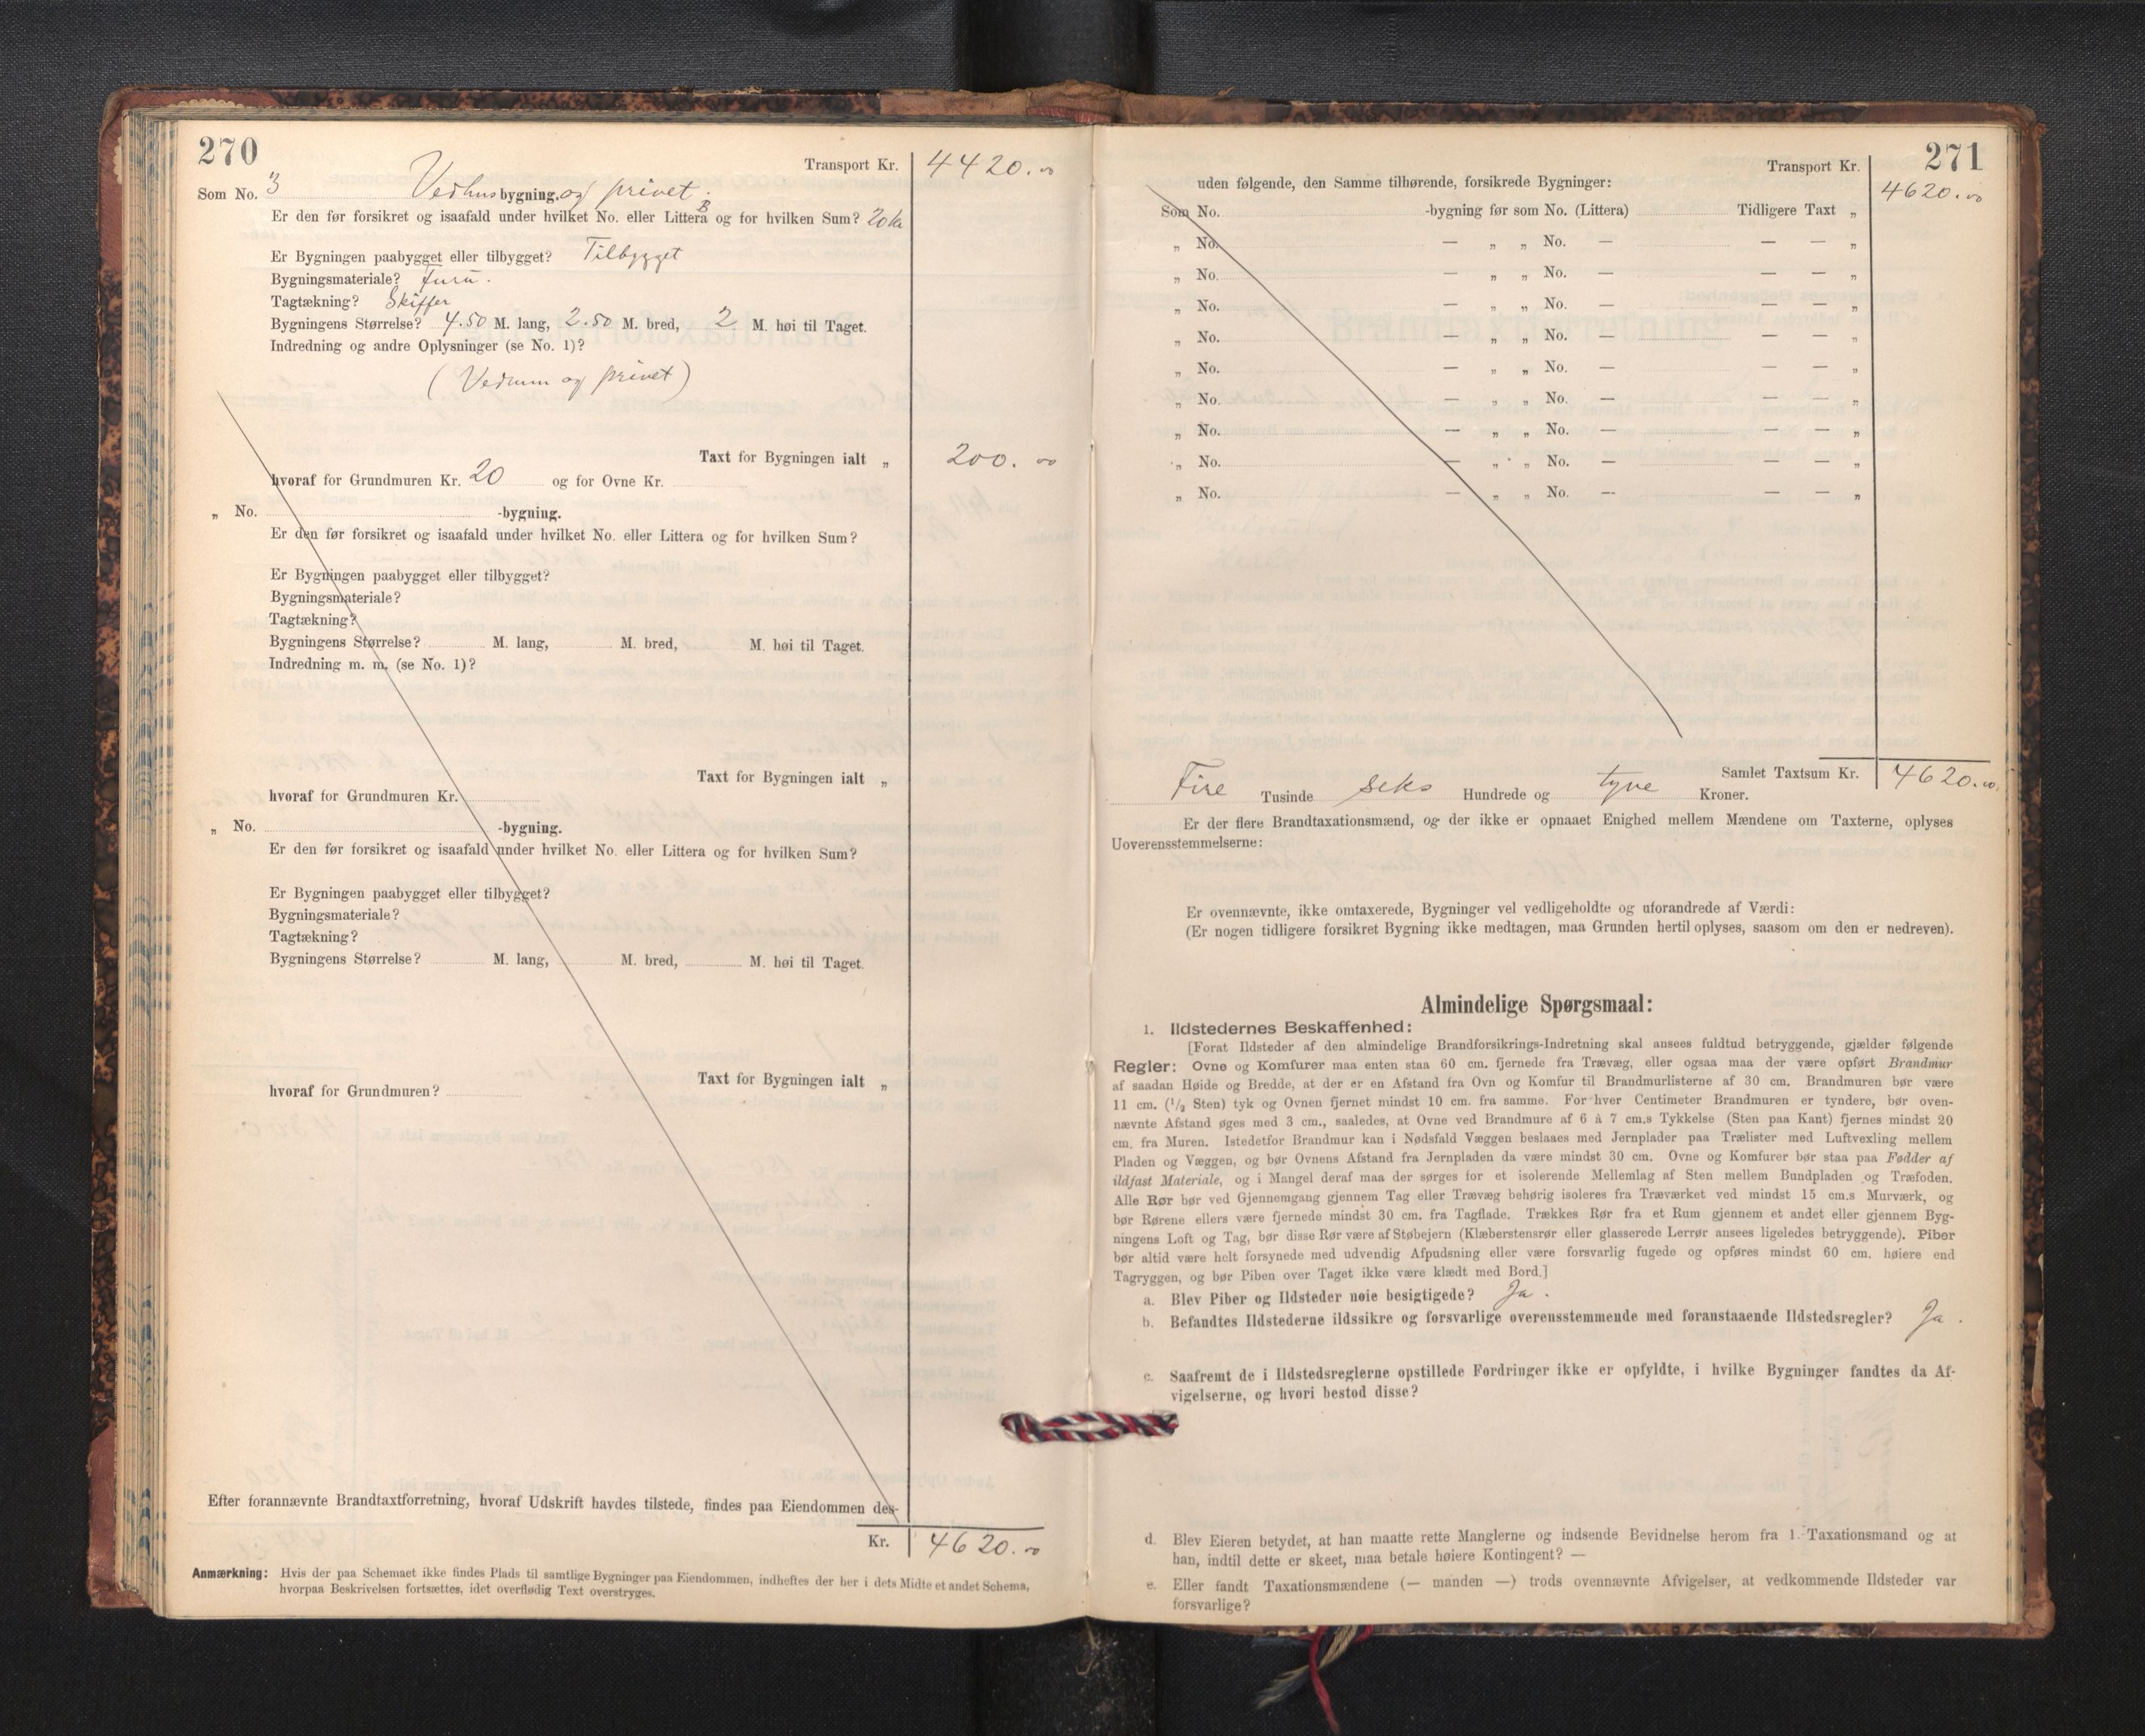 270
Transport Kr. 4420.00
Som No. 3 Vedhus bygning. og privet.
Er den før forsikret og isaafald under hvilket No. eller Littera B og for hvilken Sum? 20 kr
Er Bygningen paabygget eller tilbygget? Tilbygget
Bygningsmateriale? Furu.
Tagtækning? Skiffer
Bygningens Størrelse? 4.50 M. lang, 2.50 M. bred, 2 M. høi til Taget.
Indredning og andre Oplysninger (se No. 1)?
(Vedrum og privet)
Taxt for Bygningen ialt „ 200.00
hvoraf for Grundmuren Kr. 20 og for Ovne Kr.
„ No. -bygning.
Er den før forsikret og isaafald under hvilket No. eller Littera og for hvilken Sum?
Er Bygningen paabygget eller tilbygget?
Bygningsmateriale?
Tagtækning?
Bygningens Størrelse? M. lang, M. bred, M. høi til Taget.
Indredning m. m. (se No. 1)?
Taxt for Bygningen ialt „
hvoraf for Grundmuren Kr.
„ No. -bygning.
Er den før forsikret og isaafald under hvilket No. eller Littera og for hvilken Sum?
Er Bygningen paabygget eller tilbygget?
Bygningsmateriale?
Tagtækning?
Bygningens Størrelse? M. lang, M. bred, M. høi til Taget.
Taxt for Bygningen ialt „
hvoraf for Grundmuren?
Efter forannævnte Brandtaxtforretning, hvoraf Udskrift havdes tilstede, findes paa Eiendommen des-
Kr. 4620.00
Anmærkning: Hvis der paa Schemaet ikke findes Plads til samtlige Bygninger paa Eiendommen, indheftes der her i dets Midte et andet Schema,
hvorpaa Beskrivelsen fortsættes, idet overflødig Text overstryges.
271
Transport Kr. 4620.00
uden følgende, den Samme tilhørende, forsikrede Bygninger:
Som No. -bygning før som No. (Littera) Tidligere Taxt „
„ No. — „ „ No. — — — „
„ No. — „ „ No. — — — „
„ No. — „ „ No. — — — „
„ No. — „ „ No. — — — „
„ No. — „ „ No. — — — „
„ No. — „ „ No. — — — „
„ No. — „ „ No. — — — „
„ No. — „ „ No. — — — „
„ No. — „ „ No. — — — „
Samlet Taxtsum Kr. 4620.00
Fire Tusinde seks Hundrede og tyve Kroner.
Er der flere Brandtaxationsmænd, og der ikke er opnaaet Enighed mellem Mændene om Taxterne, oplyses
Uoverensstemmelserne:
Er ovennævnte, ikke omtaxerede, Bygninger vel vedligeholdte og uforandrede af Værdi:
(Er nogen tidligere forsikret Bygning ikke medtagen, maa Grunden hertil oplyses, saasom om den er nedreven).
Almindelige Spørgsmaal:
1. Ildstedernes Beskaffenhed:
[Forat Ildsteder af den almindelige Brandforsikrings-Indretning skal ansees fuldtud betryggende, gjælder følgende
Regler: Ovne og Komfurer maa enten staa 60 cm. fjernede fra Trævæg, eller ogsaa maa der være opført Brandmur
af saadan Høide og Bredde, at der er en Afstand fra Ovn og Komfur til Brandmurlisterne af 30 cm. Brandmuren bør være
11 cm. (1/2 Sten) tyk og Ovnen fjernet mindst 10 cm. fra samme. For hver Centimeter Brandmuren er tyndere, bør oven-
nævnte Afstand øges med 3 cm., saaledes, at Ovne ved Brandmure af 6 à 7 cm.s Tykkelse (Sten paa Kant) fjernes mindst 20
cm. fra Muren. Istedetfor Brandmur kan i Nødsfald Væggen beslaaes med Jernplader paa Trælister med Luftvexling mellem
Pladen og Væggen, og bør Ovnens Afstand fra Jernpladen da være mindst 30 cm. Ovne og Komfurer bør staa paa Fødder af
ildfast Materiale, og i Mangel deraf maa der sørges for et isolerende Mellemlag af Sten mellem Bundpladen og Træfoden.
Alle Rør bør ved Gjennemgang gjennem Tag eller Trævæg behørig isoleres fra Træværket ved mindst 15 cm.s Murværk, og
bør Rørene ellers være fjernede mindst 30 cm. fra Tagflade. Trækkes Rør fra et Rum gjennem et andet eller gjennem Byg-
ningens Loft og Tag, bør disse Rør være af Støbejern (Klæberstensrør eller glasserede Lerrør ansees ligeledes betryggende). Piber
bør altid være helt forsynede med udvendig Afpudsning eller være forsvarlig fugede og opføres mindst 60 cm. høiere end
Tagryggen, og bør Piben over Taget ikke være klædt med Bord.]
a. Blev Piber og Ildsteder nøie besigtigede? Ja.
b. Befandtes Ildstederne ildssikre og forsvarlige overensstemmende med foranstaaende Ildstedsregler? Ja.
c. Saafremt de i Ildstedsreglerne opstillede Fordringer ikke er opfyldte, i hvilke Bygninger fandtes da Af-
vigelserne, og hvori bestod disse?
d. Blev Eieren betydet, at han maatte rette Manglerne og indsende Bevidnelse herom fra 1. Taxationsmand og at
han, indtil dette er skeet, maa betale høiere Kontingent? —
e. Eller fandt Taxationsmændene (— manden —) trods ovennævnte Afvigelser, at vedkommende Ildsteder var
forsvarlige?